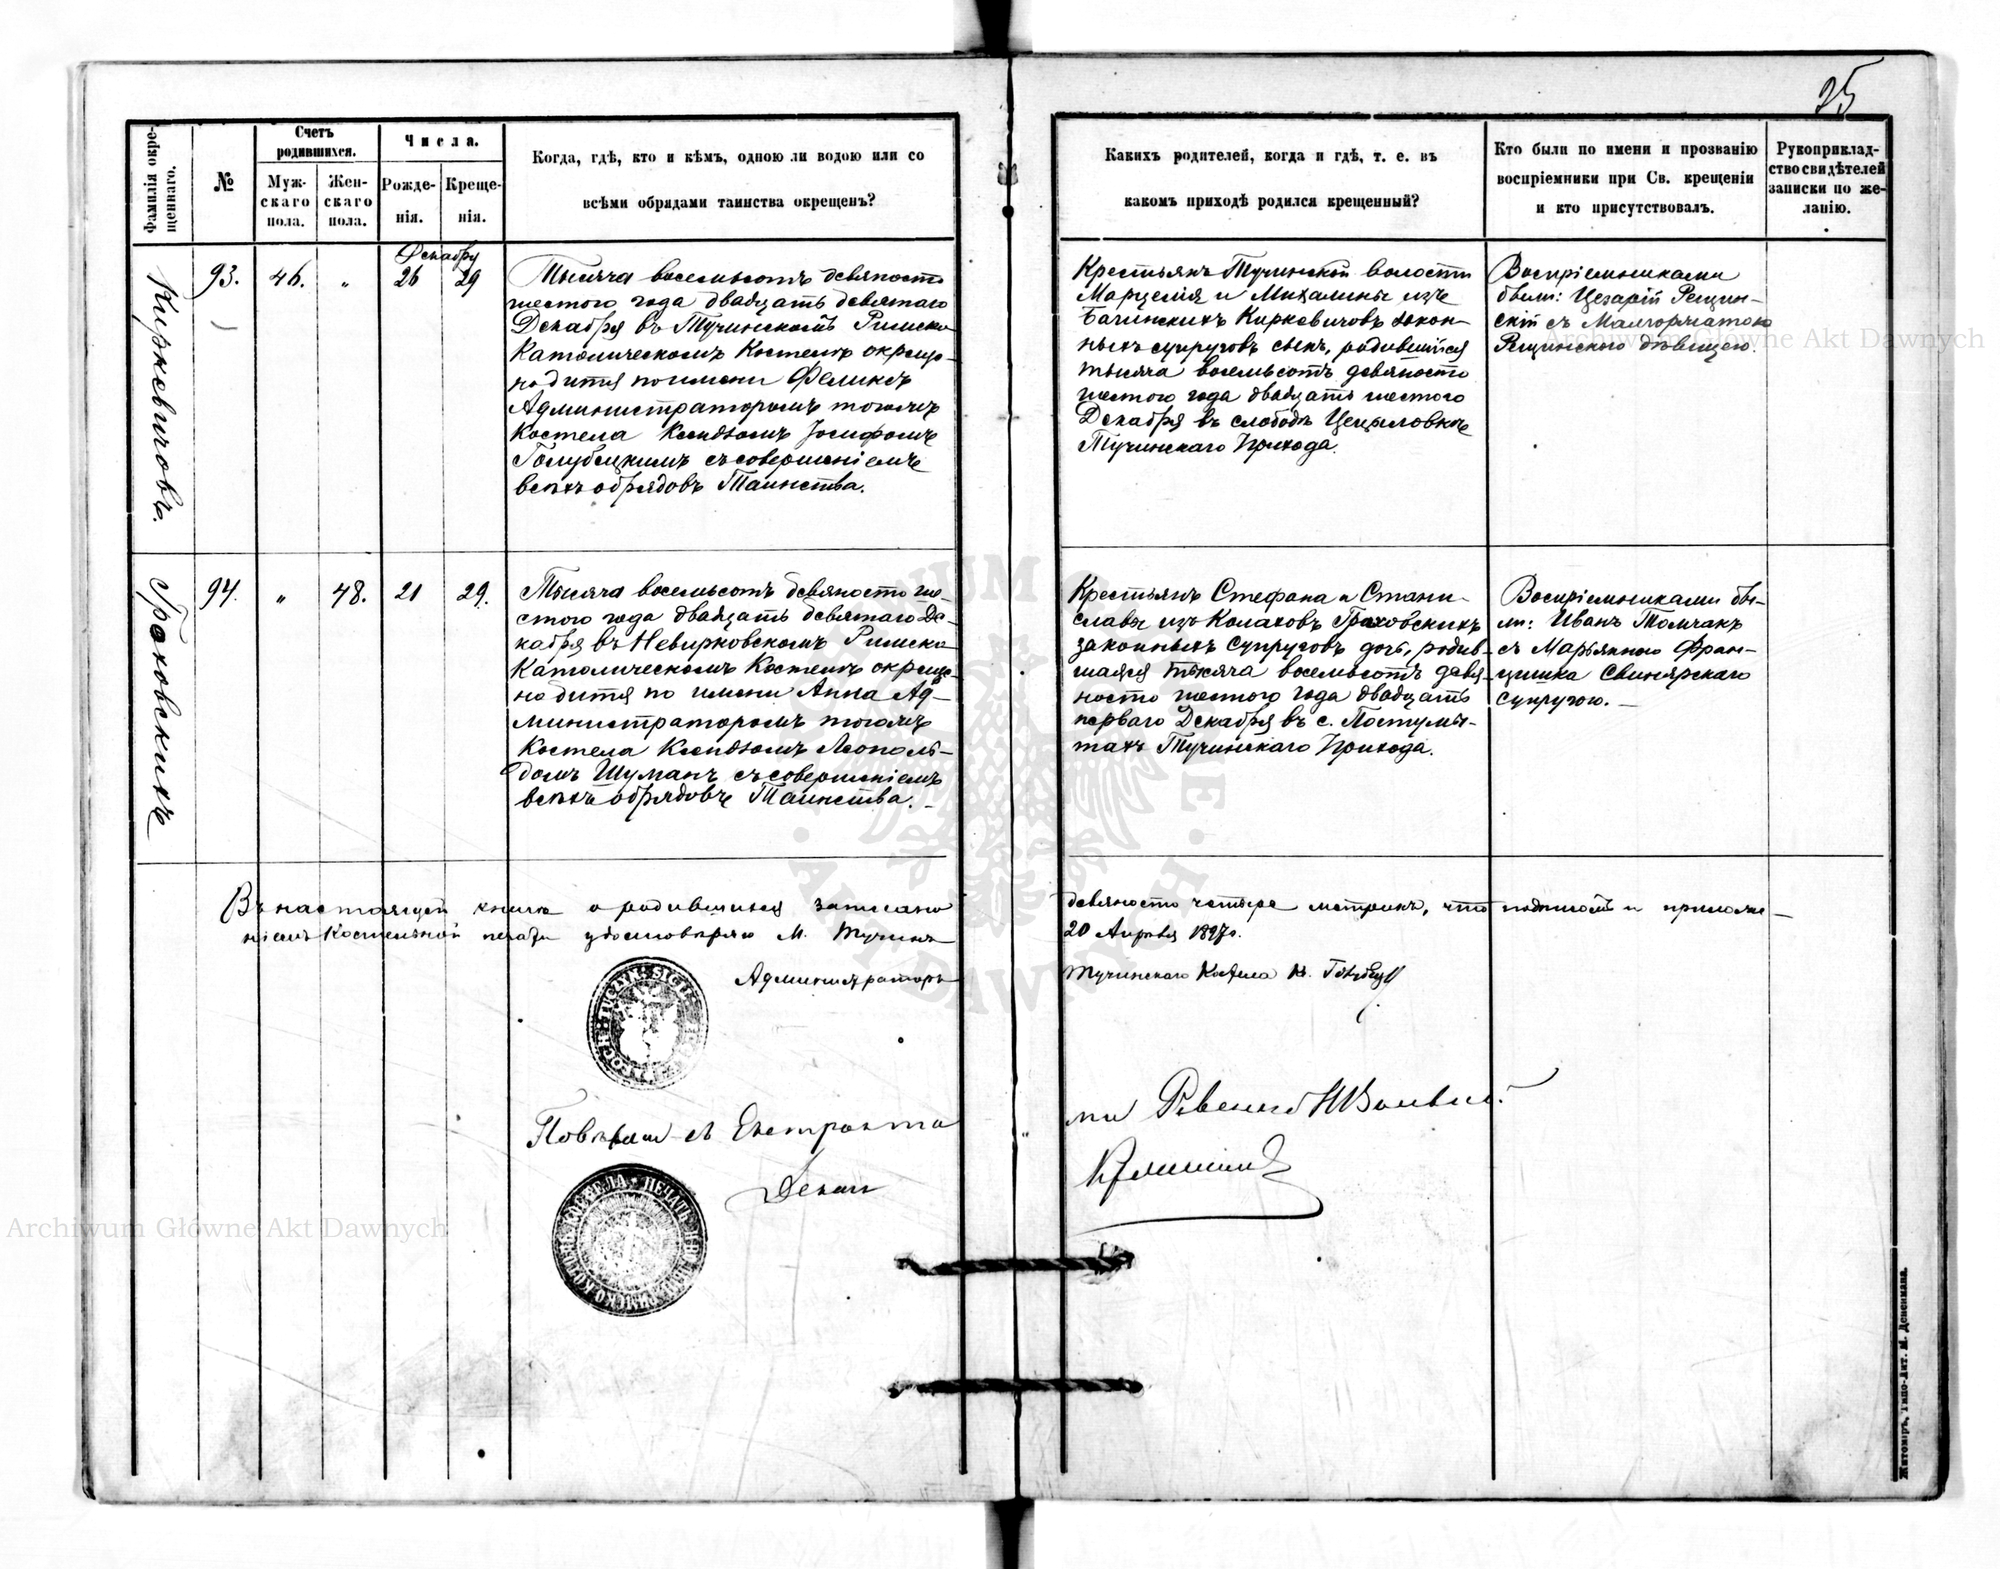 25
Фамилія окре-
щеннаго.
№
Счетъ
родившихся.
Муж-
скаго
пола.
Жен-
скаго
пола.
Числа.
Рожде-
нія.
Креще-
нія.
Когда, гдѣ, кто и кѣмъ, одною ли водою или со
всѣми обрядами таинства окрещенъ?
Какихъ родителей, когда и гдѣ, т. е. въ
какомъ приходѣ родился крещенный?
Кто были по имени и прозванію
воспріемники при Св. крещеніи
и кто присутствовалъ.
Рукоприклад-
ство свидѣтелей
записки по же-
ланію.
Киркевичовъ.
93.
46.
"
Декабру
26
29
Тысяча восемьсотъ девяносто
шестого года двадцать девятаго
Декабря въ Тучинскомъ Римско
Католическомъ Костелѣ окреще-
но дитя по имени Феликсъ
Администраторомъ тогожъ
Костела Ксендзомъ Іосифомъ
Голубецкимъ съ совершеніемъ
всѣхъ обрядовъ Таинства.
Крестьянъ Тучинской волости
Марцелія и Михалины изъ
Бачинскихъ Киркевичовъ закон-
ныхъ супруговъ сынъ, родившійся
тысяча восемьсотъ девяносто
шестого года двадцать шестого
Декабря въ слободѣ Цецыловкѣ
Тучинскаго Прихода.
Воспріемниками
были: Цезарій Рещин-
скій съ Малгоржатою
Рещинского дѣвицею.
Граховскихъ
94.
"
48.
21
29.
Тысяча восемьсотъ девяносто ше-
стого года двадцать девятаго Де-
кабря въ Невирковскомъ Римско
Католическомъ Костелѣ окреще-
но дитя по имени Анна Ад-
министраторомъ тогожъ
Костела Ксендзомъ Леополь-
домъ Шуманъ съ совершеніемъ
всѣхъ обрядовъ Таинства. -
Крестьянъ Стефана и Стани-
славы изъ Колаковъ Граховскихъ
законныхъ супруговъ дочь, родив-
шаяся тысяча восемьсотъ девя-
носто шестого года двадцать
перваго Декабря въ с. Постумы-
тахъ Тучинскаго Прихода.
Воспріемниками бы-
ли: Иванъ Томчакъ
съ Марьянною Фран-
цишка Свинярскаго
супругою. -
Въ настоящей книгѣ о родившихся записано девяносто четыре метрикъ, что подписомъ и приложе-
ніемъ Костельной печати удостовѣряю М. Тучинъ 20 Апрѣля 1897 г.
Администраторъ Тучинскаго Костела К.
Деканъ
Archiwum Główne Akt Dawnych
Archiwum Główne Akt Dawnych
Житомiръ, Типо-Лит. М. Дененмана.